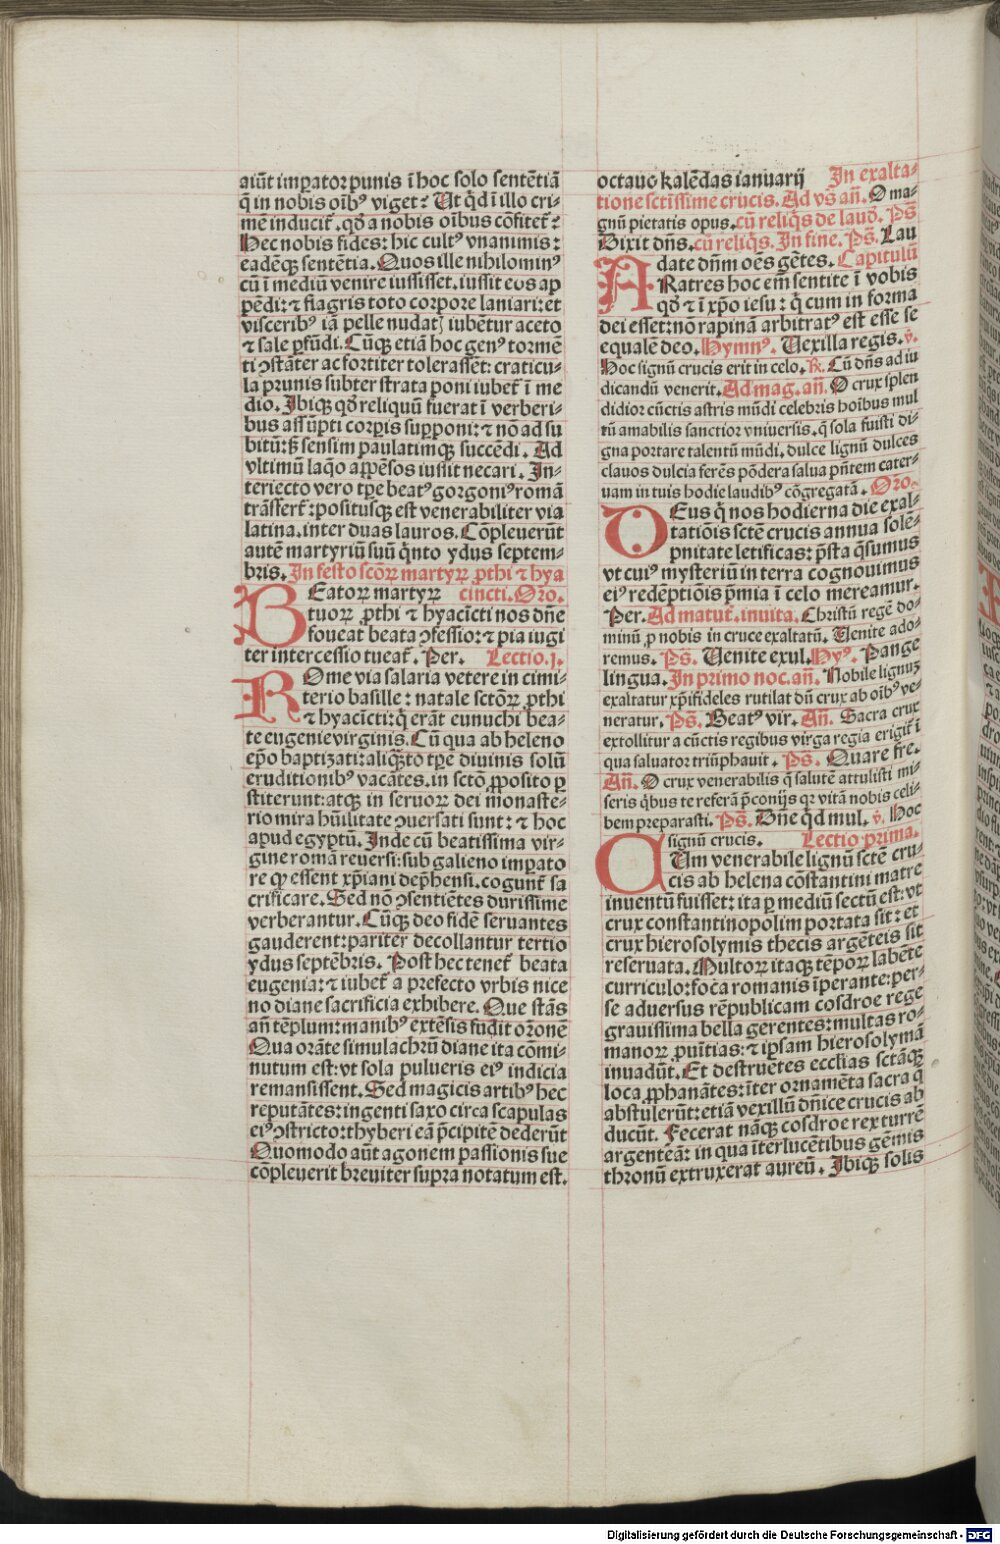 aiūt imꝑator punis ī hoc solo sentētiā
q̄ in nobis oīb⁹ viget? Ut qͥd ī illo cri-
mē inducit̄. qd̄ a nobis oībus cōfitet̄?
Hec nobis fides: hic cult⁹ vnanimis:
eadēqꝫ sentētia. Quos ille nihilomin⁹
cū ī mediū venire iussisset. iussit eos ap
pēdi: ⁊ flagris toto corpore laniari: et
viscerib⁹ iā pelle nudatꝭ iubētur aceto
⁊ sale ꝑfūdi. Cūqꝫ etiā hoc gen⁹ tormē
ti ꝯstāter ac fortiter tolerassēt: craticu-
la prunis subter strata poni iubet̄ ī me
dio. Ibiqꝫ qd̄ reliquū fuerat ī verberi-
bus assūpti corꝑis supponi: ⁊ nō ad su
bitū: sꝫ sensim paulatimqꝫ succēdi. Ad
vltimū laqͦo aꝓpēsos iussit necari. In-
teriecto vero tꝑe beat⁹ gorgoni⁹ romā
trāsfert̄: positusqꝫ est venerabiliter via
latina. inter duas lauros. Cōpleuerūt
autē martyriū suū qͥnto ydus septem-
bris. In festo scōꝝ martyꝝ ꝓthi ⁊ hya
BEatoꝝ martyꝝ cincti. Oro.
tuoꝝ ꝓthi ⁊ hyacīcti nos dn̄e
foueat beata ꝯfessio: ⁊ pia iugi
ter intercessio tueat̄. Per. Lectio.j.
ROme via salaria vetere in cimi-
terio basille: natale sctōꝝ ꝓthi
⁊ hyacīcti: qͥ erāt eunuchi bea-
te eugenie virginis. Cū qua ab heleno
epō baptizati: aliqͣto tꝑe diuinis solū
eruditionib⁹ vacātes. in sctō ꝓposito ꝑ
stiterunt: atqꝫ in seruoꝝ dei monaste-
rio mira hūilitate ꝯuersati sunt: ⁊ hoc
apud egyptū. Inde cū beatissima vir-
gine romā reuersi: sub galieno imꝑato
re qꝛ essent xp̄iani dep̄hensi. cogunt̄ sa
crificare. Sed nō ꝯsentiētes durissime
verberantur. Cūqꝫ deo fidē seruantes
gauderent: pariter decollantur tertio
ydus septēbris. Post hec tenet̄ beata
eugenia: ⁊ iubet̄ a prefecto vrbis nice
no diane sacrificia exhibere. Que stās
añ tēplum: manib⁹ extēsis fudit orōnē
Qua orāte simulachrū diane ita cōmi-
nutum est: vt sola pulueris ei⁹ indicia
remansissent. Sed magicis artib⁹ hec
reputātes: ingenti saxo circa scapulas
ei⁹ ꝯstricto: thyberi eā p̄cipitē dederūt
Quomodo aūt agonem passionis sue
cōpleuerit breuiter supra notatum est.
octauo kalēdas ianuarij In exalta-
tione sctissime crucis. Ad vs̄ añ. O ma-
gnū pietatis opus. cū reliqͥs de laud̄. Ps̄
Dixit dn̄s. cū reliqͥs. In fine. Ps̄. Lau
date dn̄m oēs gētes. Capitulū
FRatres hoc em̄ sentite ī vobis
qd̄ ⁊ ī xp̄o iesu: qͥ cum in forma
dei esset: nō rapinā arbitrat⁹ est esse se
equalē deo. Hymn⁹. Uexilla regis. v̄.
Hoc signū crucis erit in celo. R̄. Cū dn̄s ad iu
dicandū venerit. Ad mag. añ. O crux splen
didior cūctis astris mūdi celebris hoībus mul
tū amabilis sanctior vniuersis. q̄ sola fuisti di-
gna portare talentū mūdi. dulce lignū dulces
clauos dulcia ferēs pōdera salua pn̄tem cater-
uam in tuis hodie laudib⁹ cōgregatā. Oro.
DEus qͥ nos hodierna die exal-
tatiōis sctē crucis annua solē-
pnitate letificas: p̄sta qs̄umus
vt cui⁹ mysteriū in terra cognouimus
ei⁹ redēptiōis p̄mia ī celo mereamur.
Per. Ad matut̄. inuita. Christū regē do-
minū ꝓ nobis in cruce exaltatū. Uenite ado-
remus. Ps̄. Uenite exul. Hy⁹. Pange
lingua. In primo noc. añ. Nobile lignuꝫ
exaltatur xp̄i fideles rutilat dn̄i crux ab oīb⁹ ve-
neratur. Ps̄. Beat⁹ vir. Añ. Sacra crux
extollitur a cūctis regibus virga regia erigit̄ ī
qua saluator triūphauit. Ps̄. Quare fre.
Añ. O crux venerabilis q̄ salutē attulisti mi-
seris qͥbus te referā p̄conijs qꝛ vitā nobis celi-
bem preparasti. Ps̄. Dn̄e qͥd mul. v̄. Hoc
signū crucis. Lectio prima.
CUm venerabile lignū sctē cru-
cis ab helena cōstantini matre
inuentū fuisset: ita ꝑ mediū sectū est: vt
crux constantinopolim portata sit: et
crux hierosolymis thecis argēteis sit
reseruata. Multoꝝ itaqꝫ tēpoꝝ labēte
curriculo: foca romanis īperante: per-
se aduersus rēpublicam cosdroe rege
grauissima bella gerentes: multas ro-
manoꝝ ꝓuītias: ⁊ ipsam hierosolymā
inuadūt. Et destruētes eccl̄ias sctāqꝫ
loca ꝓphanātes: īter ornamēta sacra q̄
abstulerūt: etiā vexillū dn̄ice crucis ab
ducūt. Fecerat nāqꝫ cosdroe rex turrē
argenteā: in qua īterlucētibus gēmis
thronū extruxerat aureū. Ibiqꝫ solis
Digitalisierung gefördert durch die Deutsche Forschungsgemeinschaft - DFG